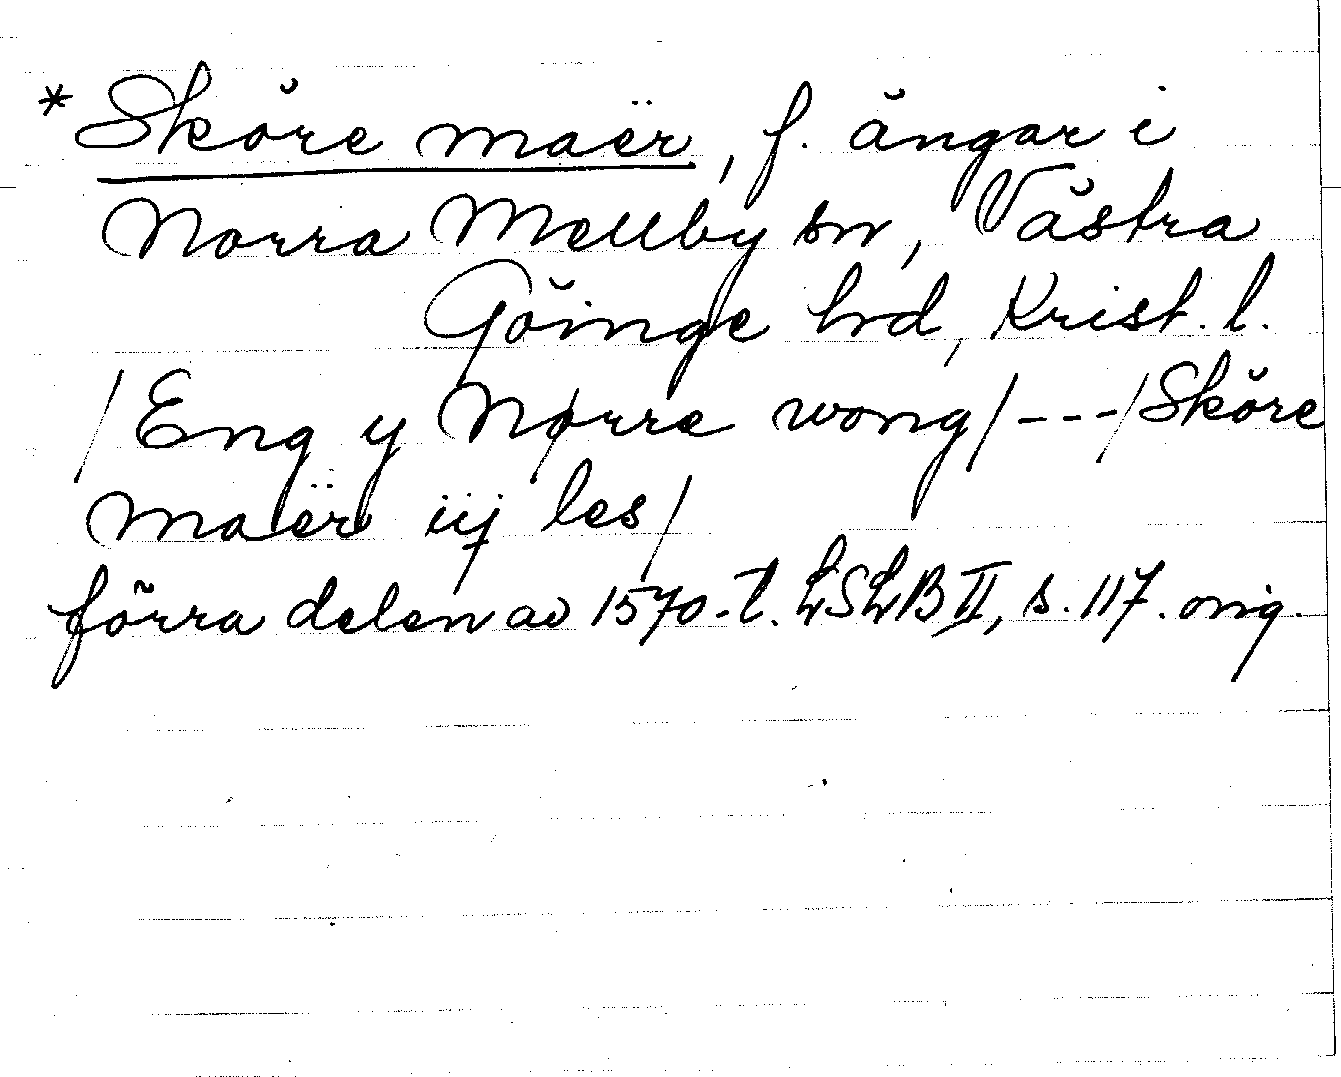 * Sköre maër, f. ängar i
Norra Mellby sn, Västra
Göinge hrd, Krist. l.
/Eng y Nørre wong/ --- /Sköre
maër iij les/
förra delen av 1570-t. LSLB II, s. 117. orig.